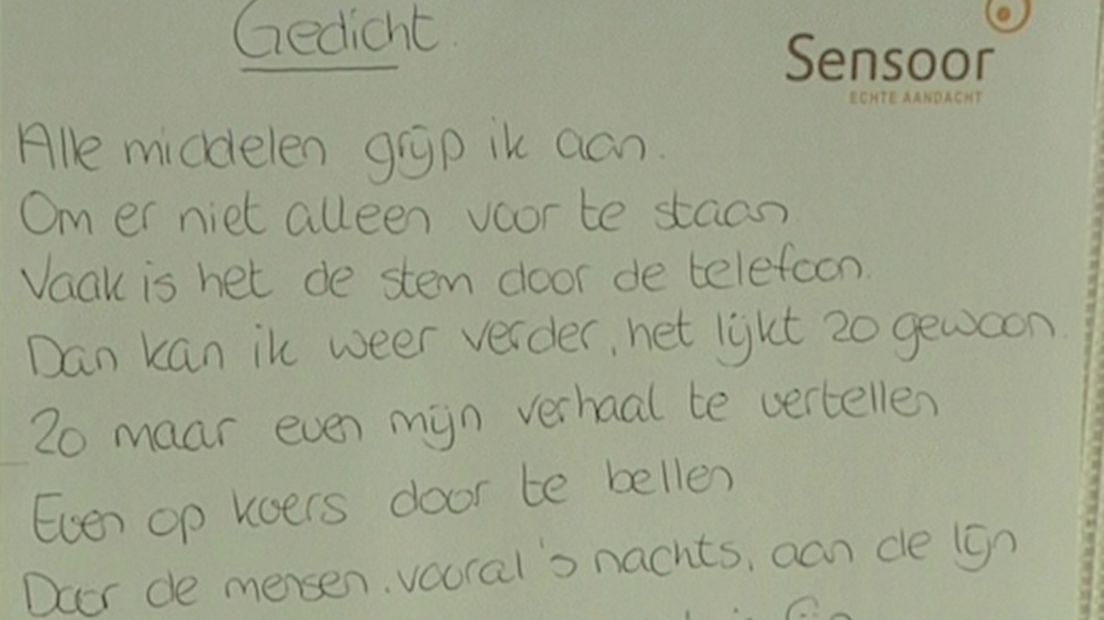 Gedicht.
Sensoor
ECHTE AANDACHT
Alle middelen grijp ik aan.
Om er niet alleen voor te staan
Vaak is het de stem door de telefoon.
Dan kan ik weer verder, het lijkt zo gewoon.
Zo maar even mijn verhaal te vertellen
Even op koers door te bellen
Door de mensen. vooral 's nachts, aan de lijn